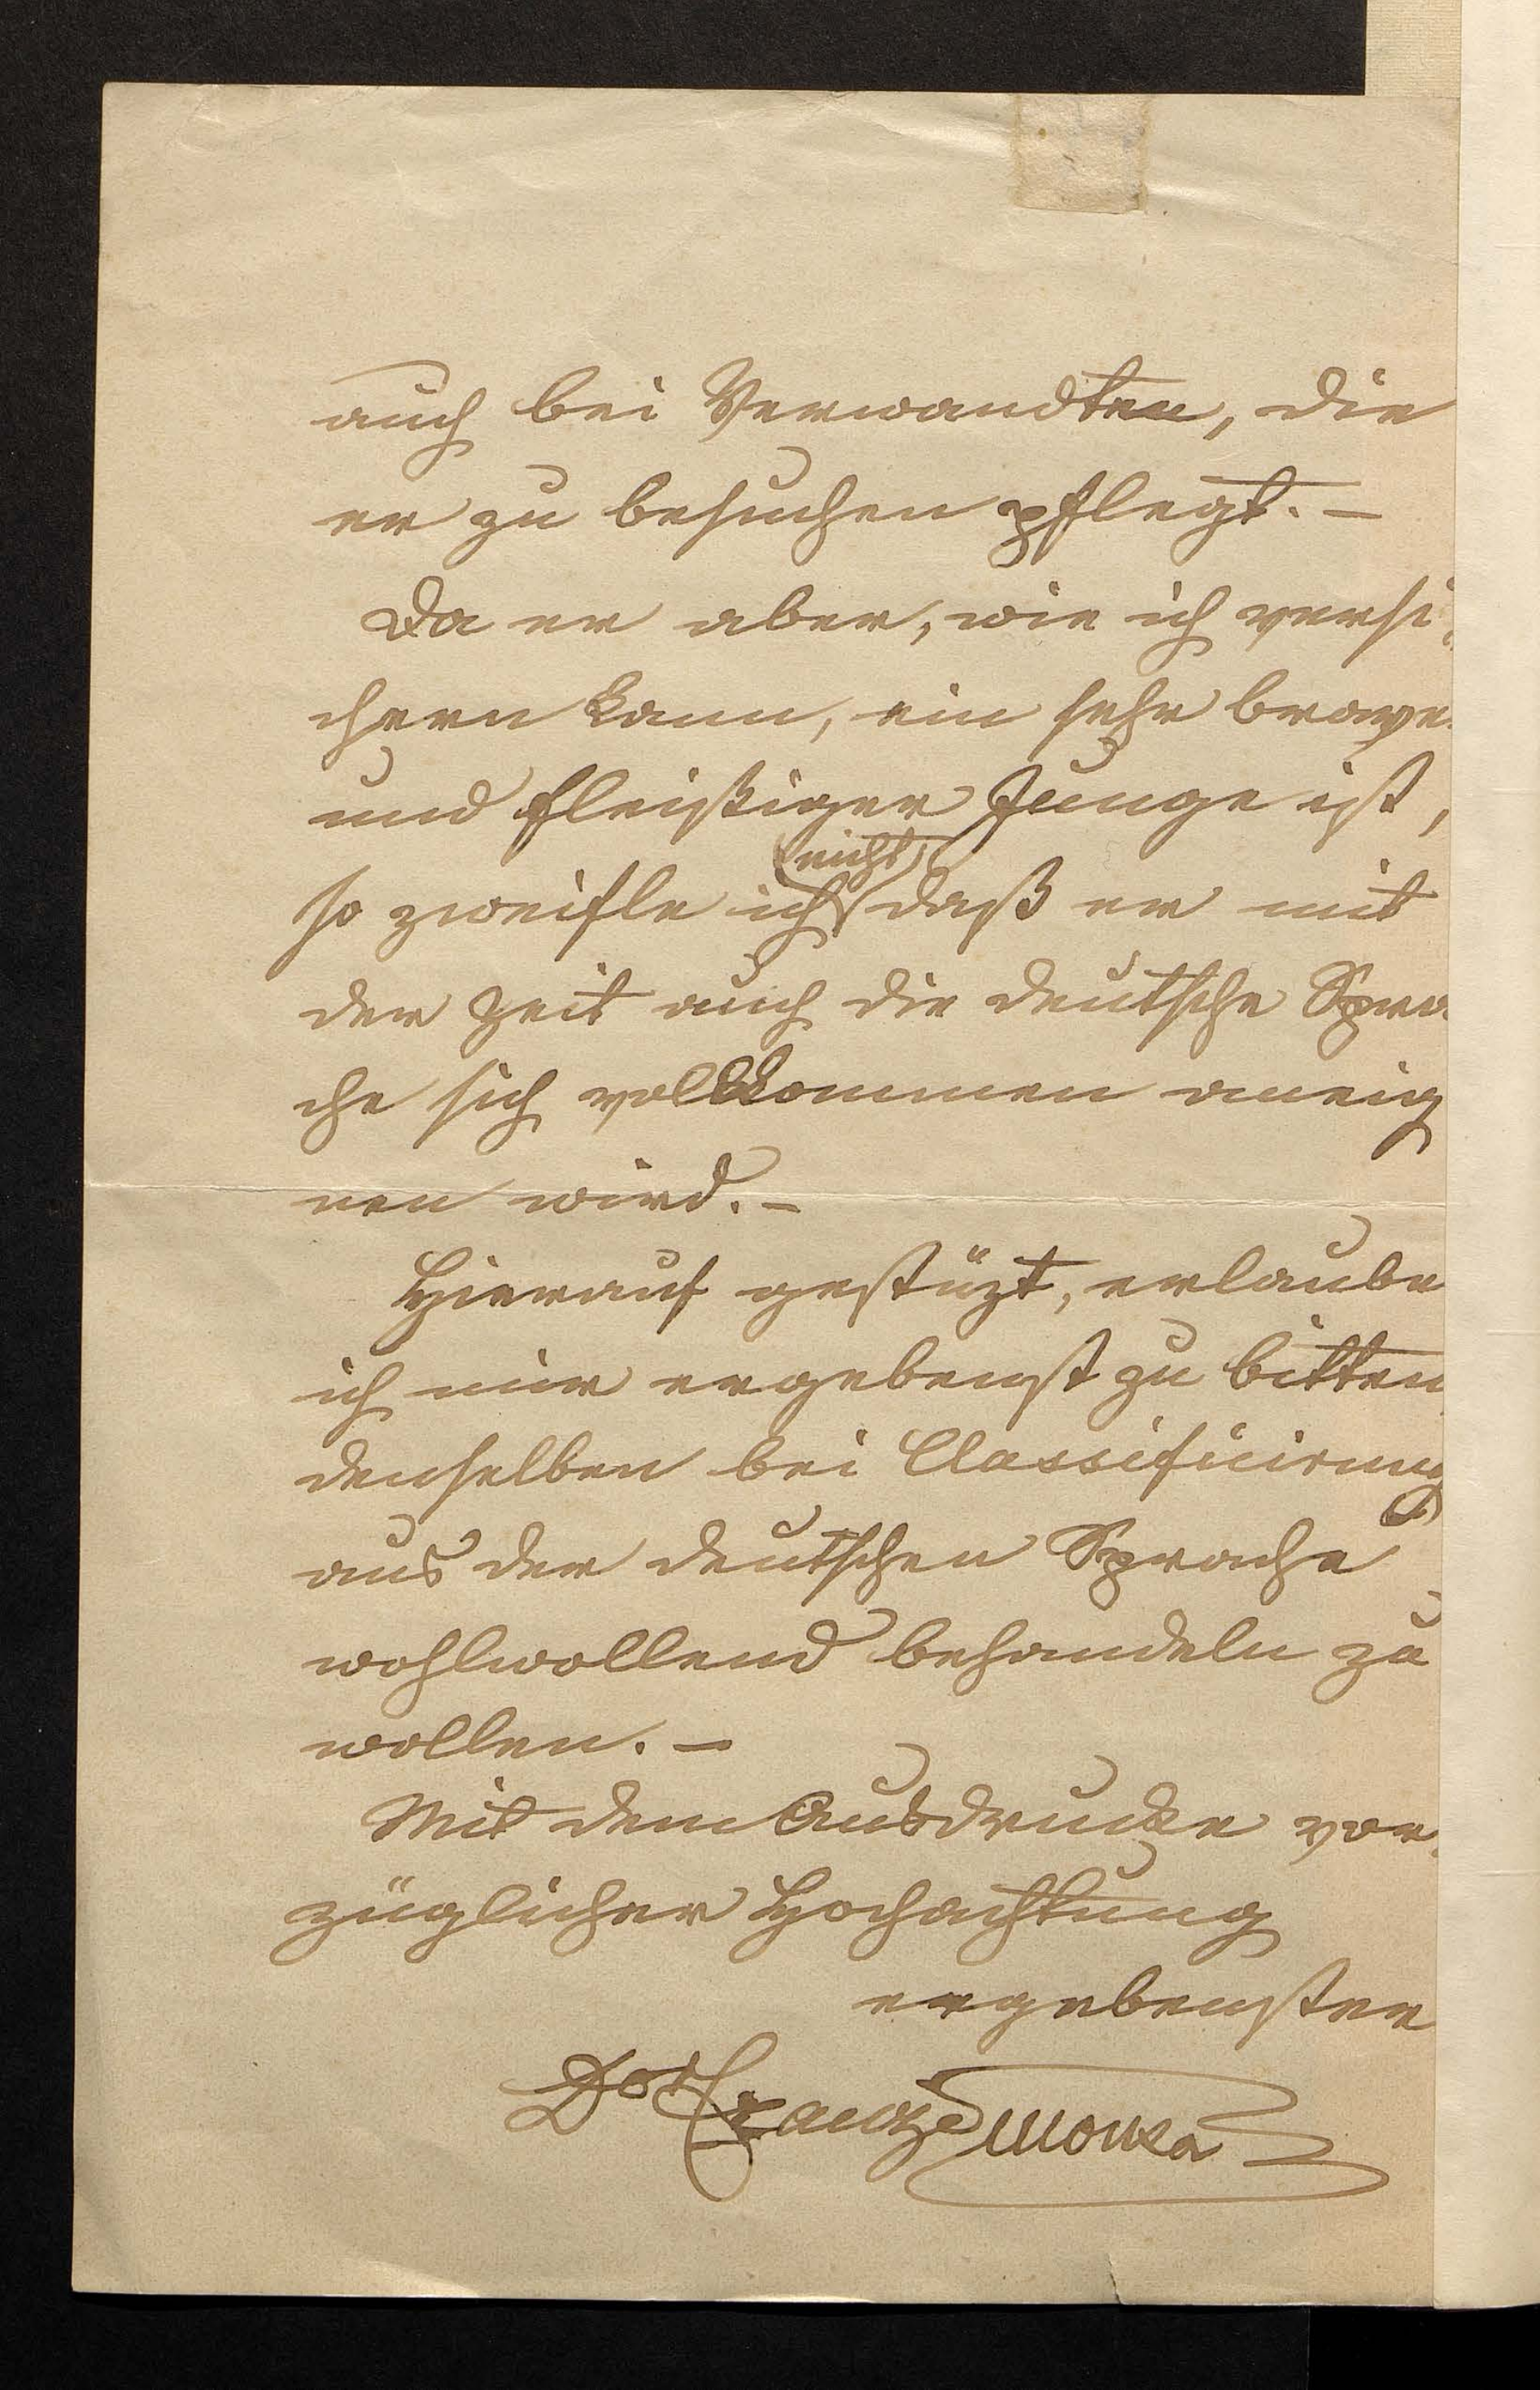 auch bei Verwandten, die
er zu besuchen pflegt. –
Da er aber, wie ich versi-
chern kann, ein sehr braver
und fleißiger Junge ist,
so zweifle ich nicht daß er mit
der Zeit auch die deutsche Spra-
che sich vollkommen aneig
nen wird. –
Hierauf gestüzt, erlaube
ich mir ergebenst zu bitten
denselben bei Classificirung
aus der deutschen Sprache
wohlwollend behandeln zu
wollen. –
Mit dem Ausdrucke vor-
züglicher Hochachtung
ergebenster